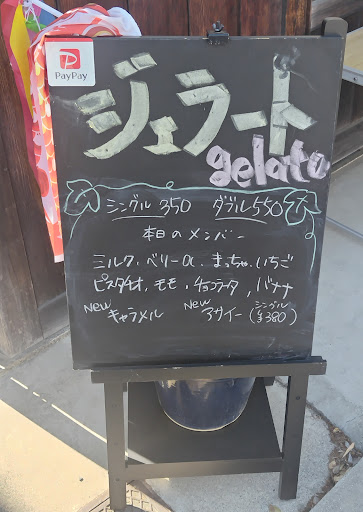 PayPay
ジェラート
gelato
シングル 350 ダブル 550
本日のメンバー
ミルク・ベリーα・まっちゃ・いちご
ピスタチオ、モモ・チョコラータ、バナナ
New キャラメル New アサイー (シングル ¥380)